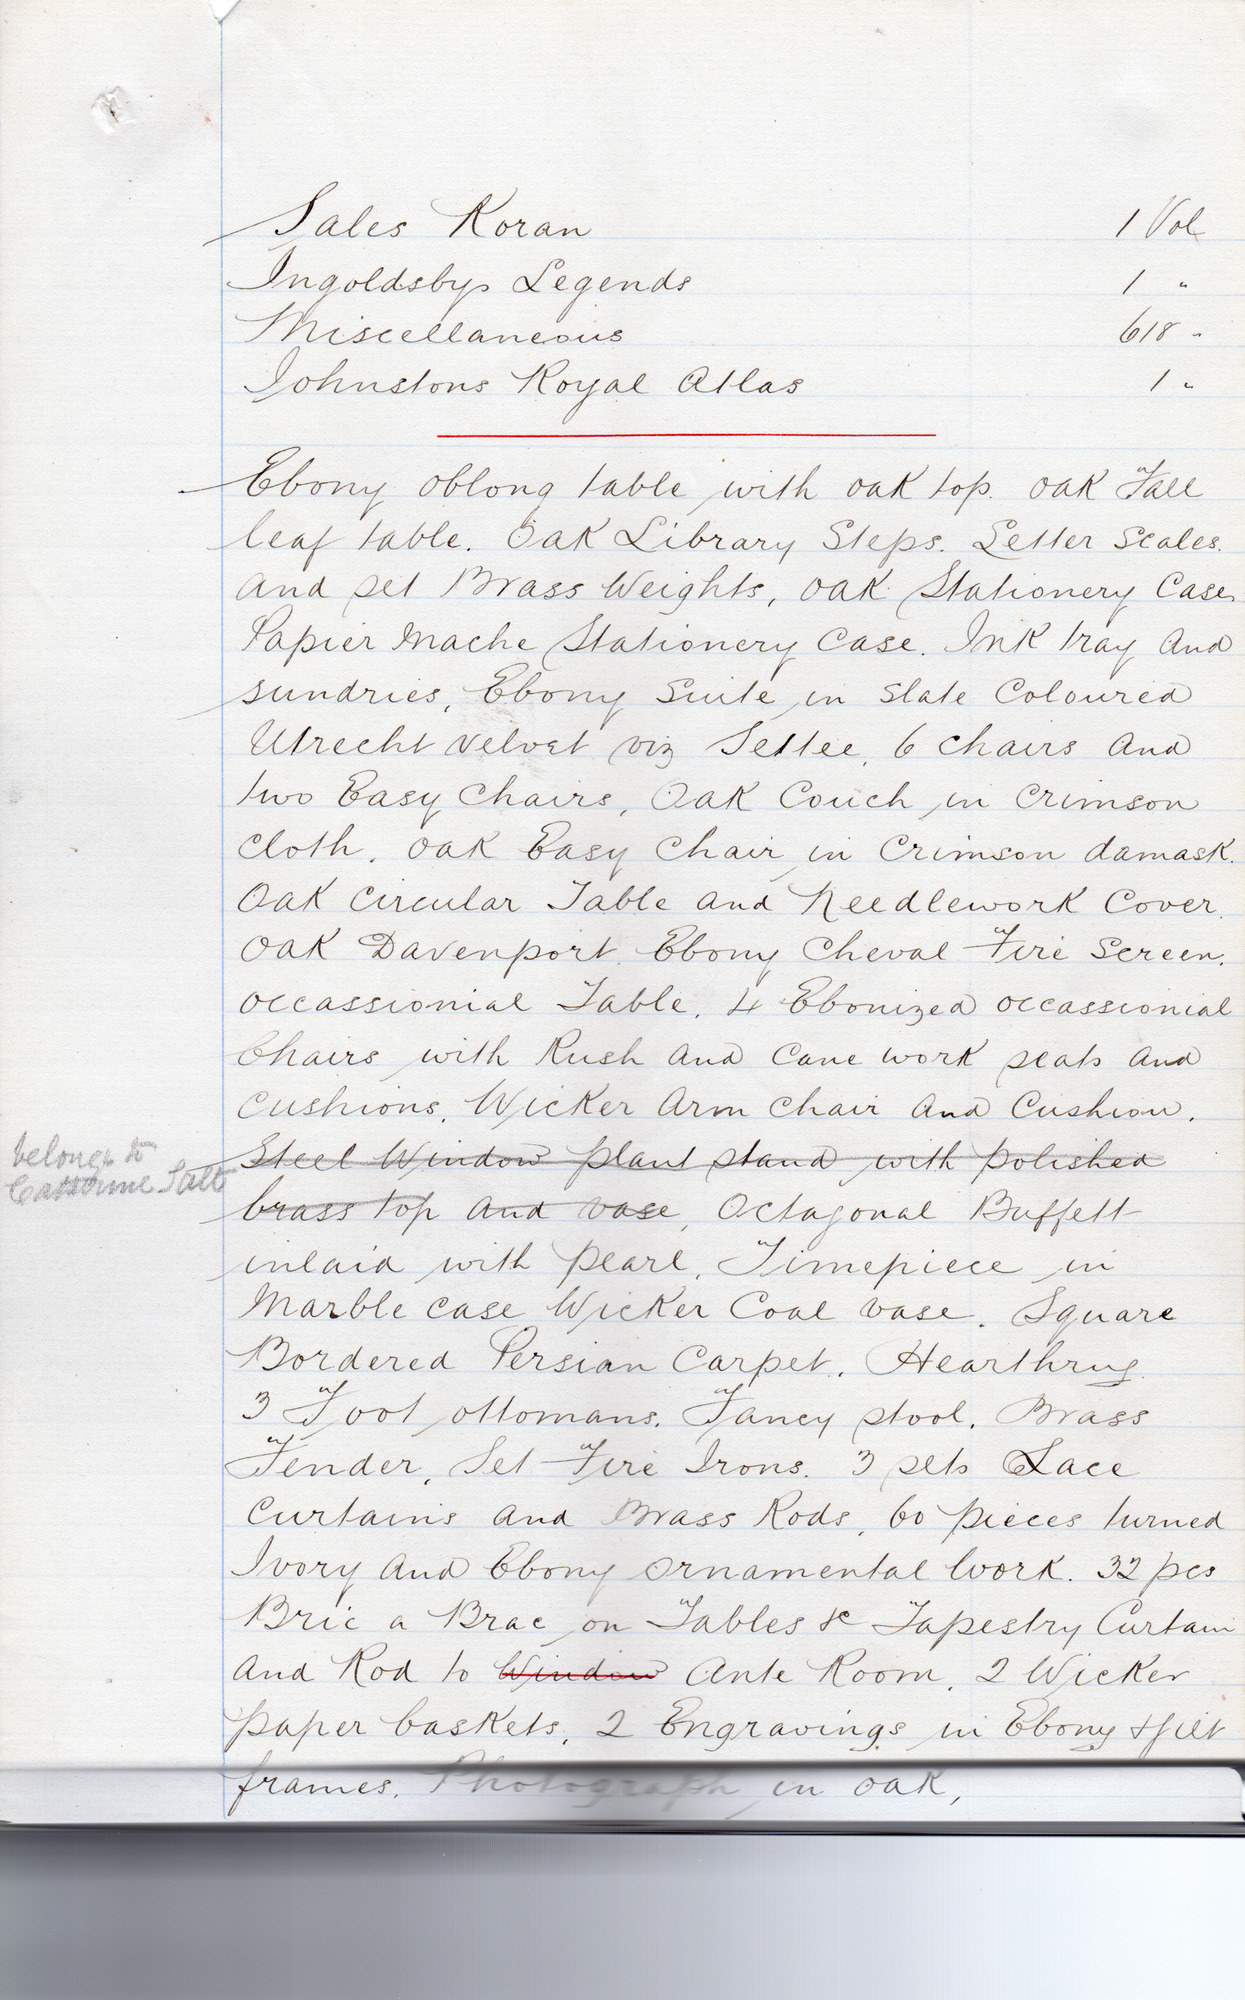 Sales Koran 1 Vol
Ingoldsbys Legends 1 "
Miscellaneous 618 "
Johnstons Royal Atlas 1 "
Ebony oblong table with oak top. oak Fall
leaf table. Oak Library Steps. Letter Scales.
and set Brass Weights, oak Stationery Case,
Papier Mache Stationery Case. Ink tray and
sundries, Ebony Suite in slate Coloured
Utrecht Velvet viz Settee, 6 chairs and
two Easy Chairs, Oak Couch in Crimson
cloth, oak Easy Chair in Crimson damask.
Oak Circular Table and Needlework Cover.
Oak Davenport. Ebony Cheval Fire Screen.
occassionial Table, 4 Ebonized occassionial
Chairs with Rush and Cane work seats and
cushions, Wicker Arm Chair and Cushion.
belongs to
Salt
Steel Window plant stand with polished
brass top and vase, Octagonal Buffett
inlaid with pearl, Timepiece in
Marble case Wicker Coal vase. Square
Bordered Persian Carpet. Hearthrug.
3 Foot ottomans. Fancy stool. Brass
Fender, Set Fire Irons. 3 sets Lace
Curtains and Brass Rods, 60 pieces turned
Ivory and Ebony ornamental work. 32 pcs
Bric a Brac on Tables &c Tapestry Curtain
and Rod to Window Ante Room, 2 Wicker
paper baskets, 2 Engravings in Ebony & gilt
frames. Photograph in oak,